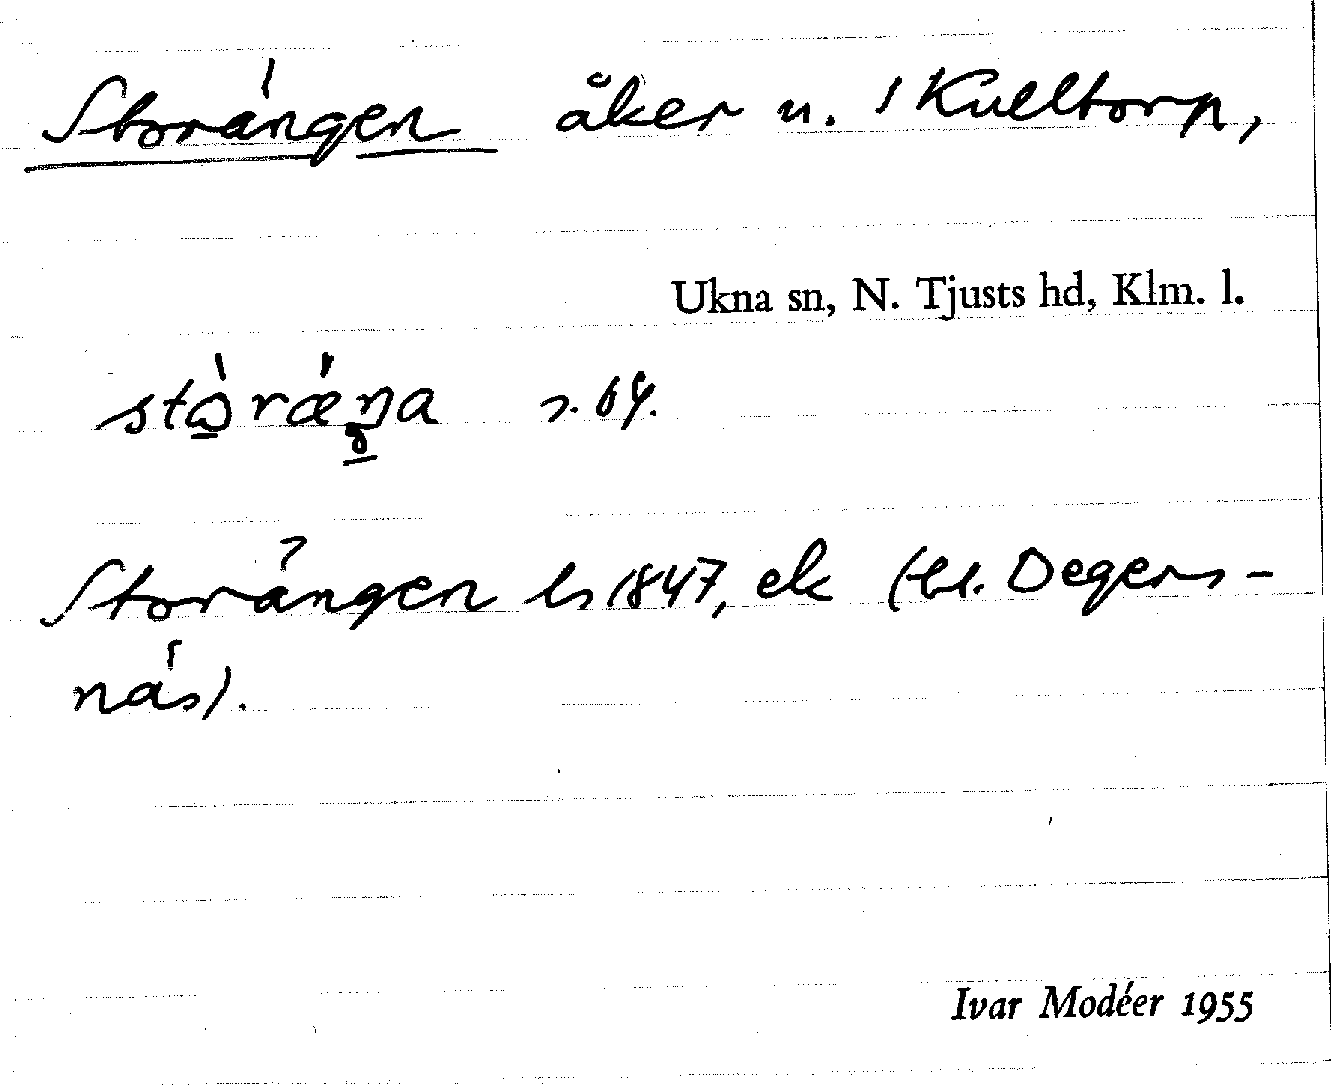 Storängen åker u. Kulltorp,
Ukna sn, N. Tjusts hd, Klm. l.
s. 64.
Storängen ls 1847, ek (Hl. Degers-
näs).
Ivar Modéer 1955